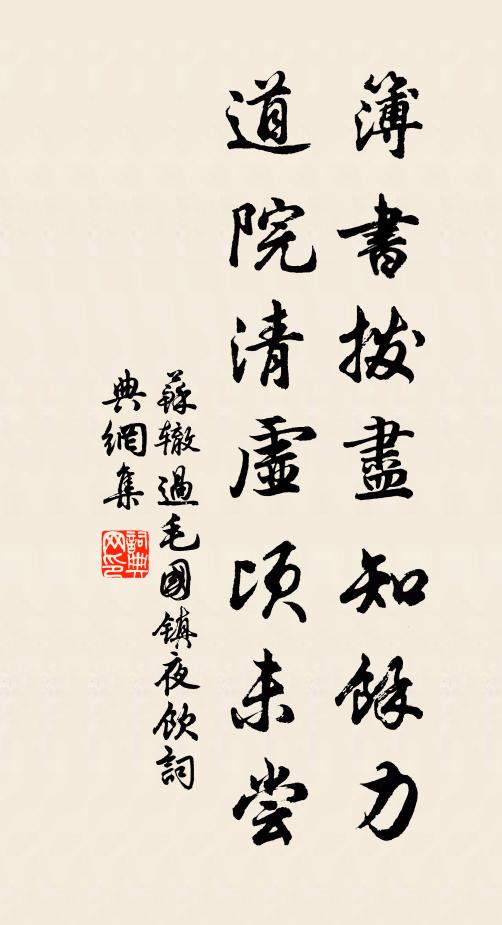 簿書拨盡知餘力
道院清虛頃未尝
蘇辙過毛國鎮夜飲詞
典網集
詞典
网印